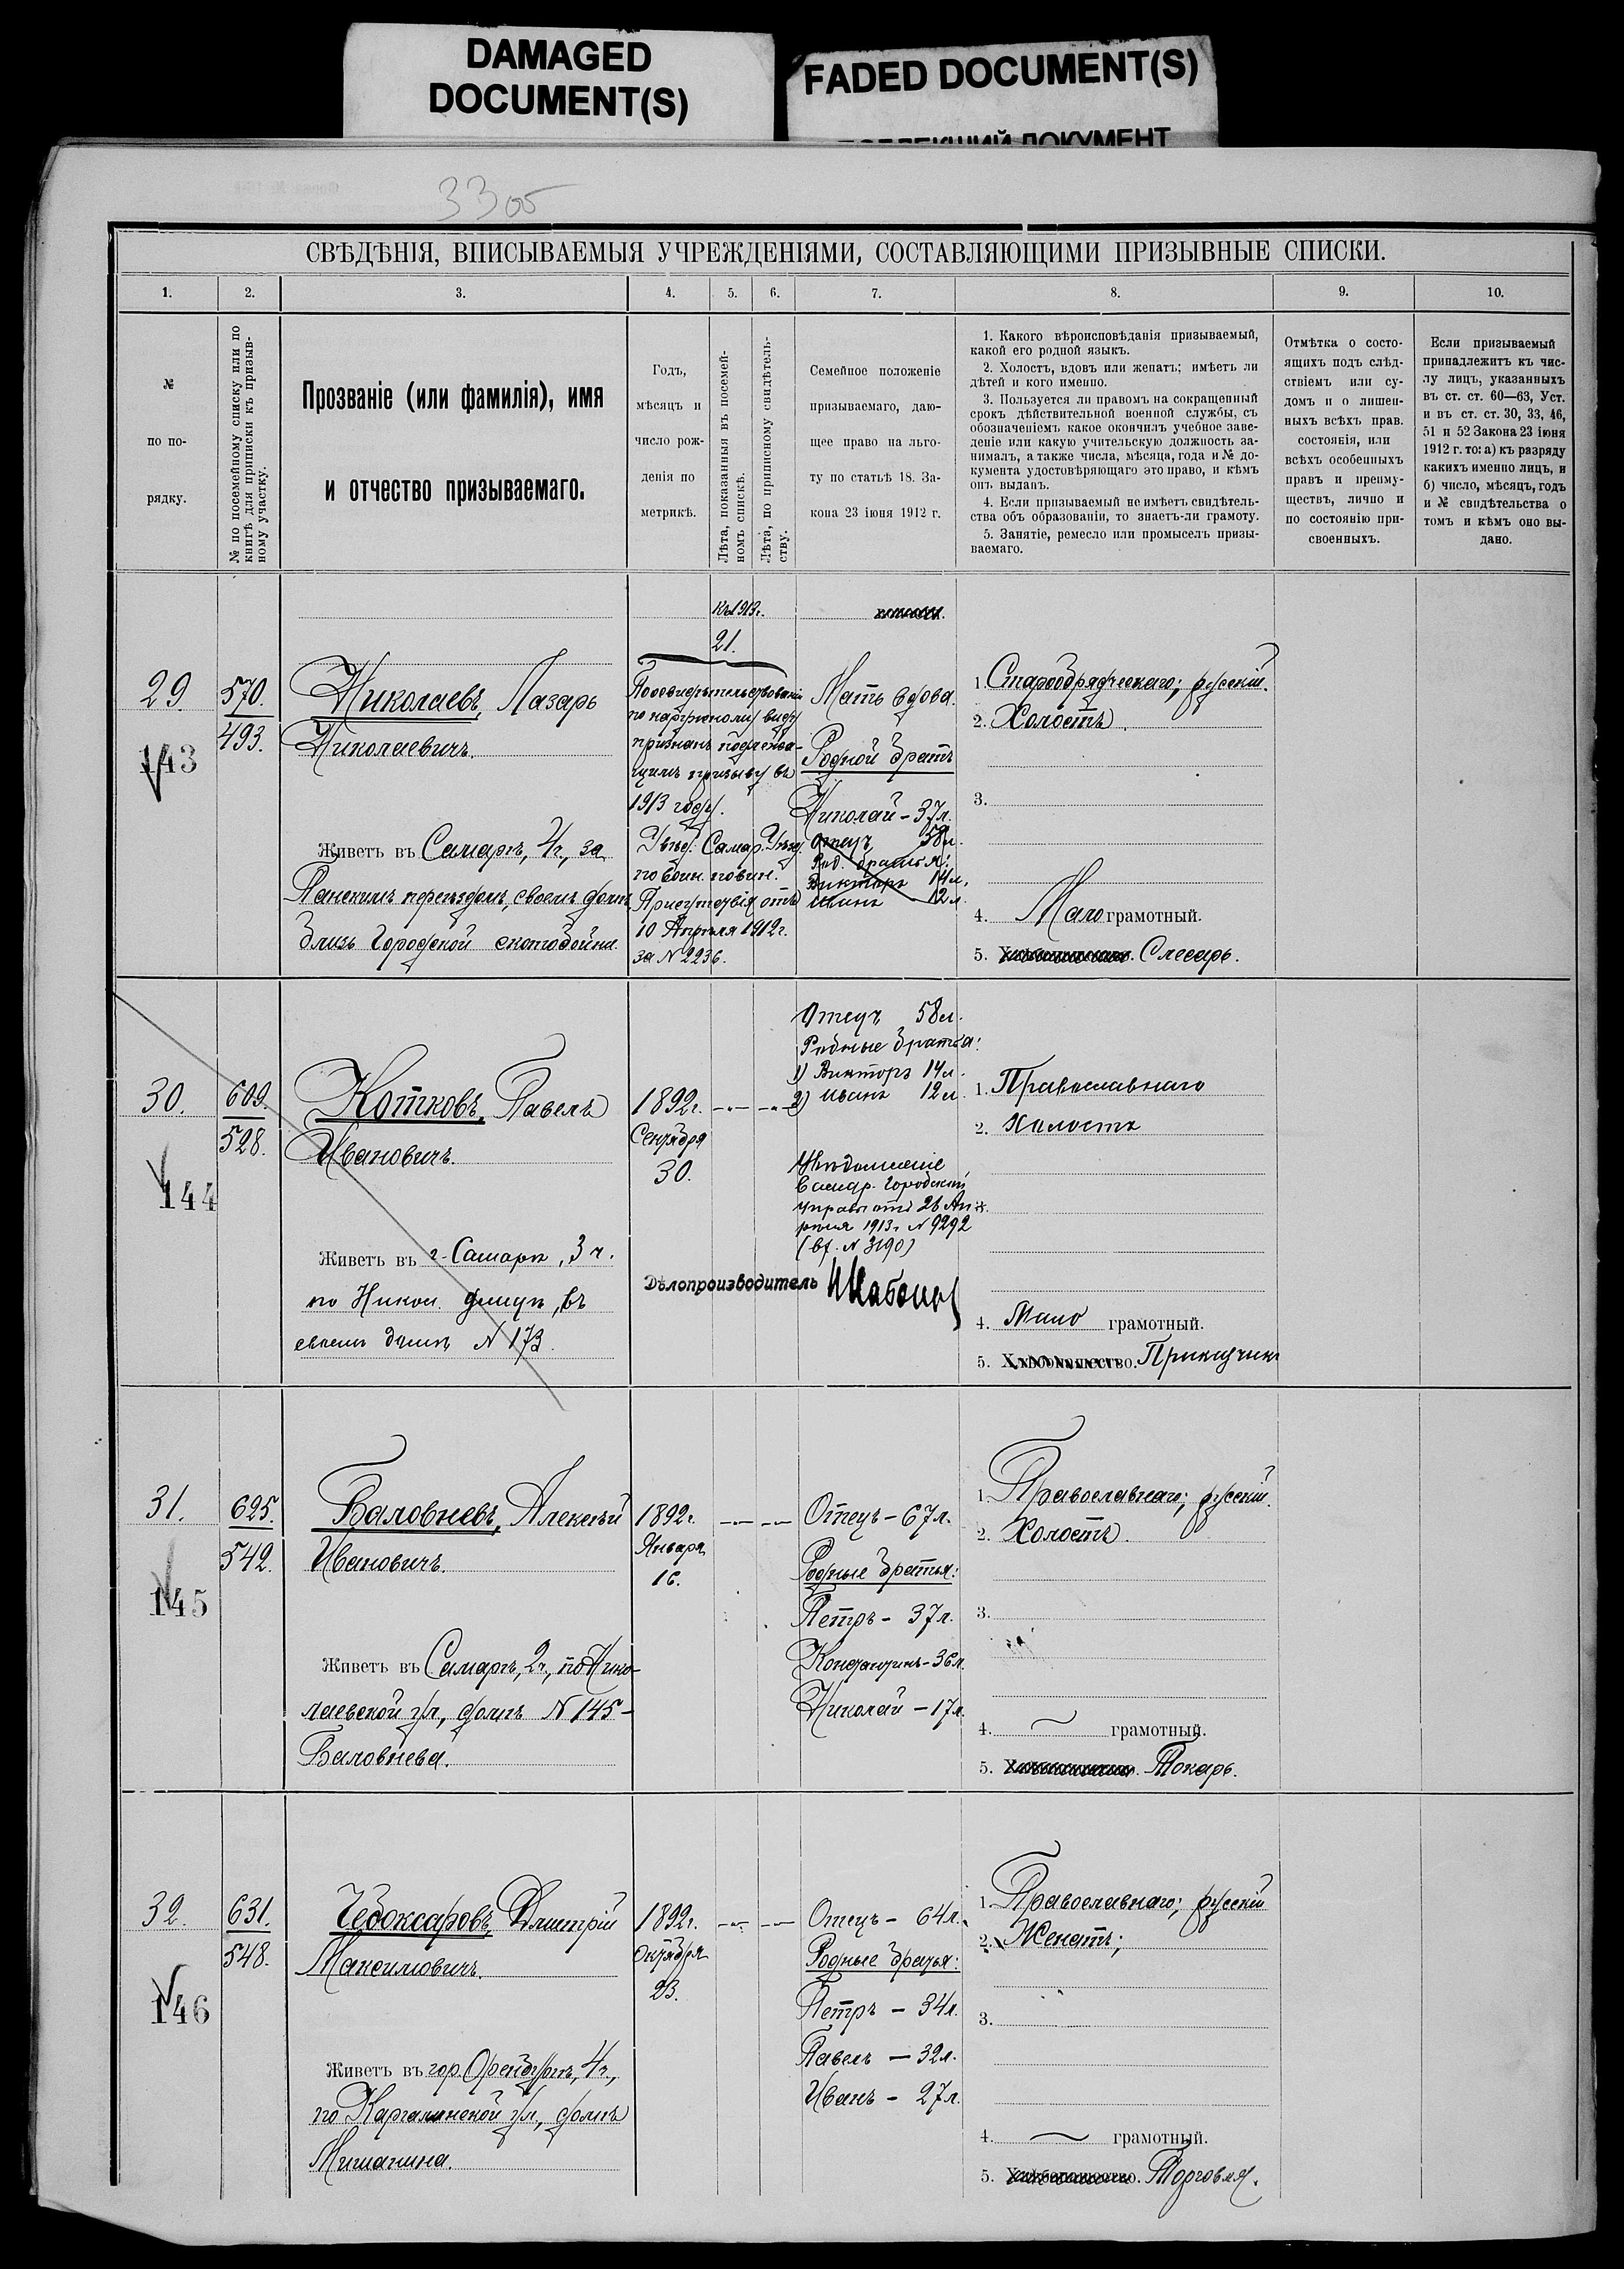 DAMAGED
DOCUMENT(S)
FADED DOCUMENT(S)
ДОКУМЕНТ
3305
СВѢДѢНІЯ, ВПИСЫВАЕМЫЯ УЧРЕЖДЕНІЯМИ, СОСТАВЛЯЮЩИМИ ПРИЗЫВНЫЕ СПИСКИ.
1. 2. 3. 4. 5. 6. 7. 8. 9. 10.
№
по по-
рядку.
№ по посемейному списку или по
книгѣ для приписки къ призыв-
ному участку.
Прозваніе (или фамилія), имя
и отчество призываемаго.
Годъ,
мѣсяцъ и
число рож-
денія по
метрикѣ.
Лѣта, показанныя въ посемей-
номъ спискѣ.
Лѣта, по приписному свидѣтель-
ству.
Семейное положеніе
призываемаго, даю-
щее право на льго-
ту по статьѣ 18. За-
кона 23 іюня 1912 г.
1. Какого вѣроисповѣданія призываемый,
какой его родной языкъ.
2. Холостъ, вдовъ или женатъ; имѣетъ ли
дѣтей и кого именно.
3. Пользуется ли правомъ на сокращенный
срокъ дѣйствительной военной службы, съ
обозначеніемъ какое окончилъ учебное заве-
деніе или какую учительскую должность за-
нималъ, а также числа, мѣсяца, года и № до-
кумента удостовѣряющаго это право, и кѣмъ
онъ выданъ.
4. Если призываемый не имѣетъ свидѣтель-
ства объ образованіи, то знаетъ-ли грамоту.
5. Занятіе, ремесло или промыселъ призы-
ваемаго.
Отмѣтка о состо-
ящихъ подъ слѣд-
ствіемъ или су-
домъ и о лишен-
ныхъ всѣхъ прав.
состоянія, или
всѣхъ особенныхъ
правъ и преиму-
ществъ, лично и
по состоянію при-
своенныхъ.
Если призываемый
принадлежитъ къ чис-
лу лицъ, указанныхъ
въ ст. ст. 60—63, Уст.
и въ ст. ст. 30, 33, 46,
51 и 52 Закона 23 іюня
1912 г. то: а) къ разряду
какихъ именно лицъ, и
б) число, мѣсяцъ, годъ
и № свидѣтельства о
томъ и кѣмъ оно вы-
дано.
29.
143
570.
493.
Николаевъ, Лазарь
Николаевичъ.
Живетъ въ Самарѣ, 4ч., за
Панскимъ переѣздомъ, своемъ домѣ,
близъ Городской скотобойни.
Къ 1913г.
21.
По освидѣтельствованію
по наружному виду
признанъ подлежа-
щимъ призыву въ
1913 году.
Увѣд. Самар. Уѣзд.
по воин. повин.
Присутствія отъ
10 Апрѣля 1912г.
за N 2236.
Мать вдова.
Родной братъ
Николай - 37л.
Отецъ 58л.
Род. братья:
Викторъ 14л.
Иванъ 12л.
1. Старообрядческаго; русскій.
2. Холостъ.
3.
4. Малограмотный.
5. Слесарь.
30.
144
609.
528.
Котковъ, Павелъ
Ивановичъ.
Живетъ въ г. Самарѣ, 3 ч.
по Никол. улицѣ, въ
своемъ домѣ N 173.
1892г.
Сентября
30.
Отецъ 58л.
Родные братья:
1) Викторъ 14л.
2) Иванъ 12л.
Увѣдомленіе
Самар. Городской
Управы отъ 26 Ап-
рѣля 1913г. N 9292
(вх. N 3190)
Дѣлопроизводитель
1. Православнаго
2. Холостъ
3.
4. Мало грамотный.
5. Хлѣбопашество. Приказчикъ
31.
145
625.
542.
Баловневъ, Алексѣй
Ивановичъ.
Живетъ въ Самарѣ, 2ч., по Нико-
лаевской ул., домъ N 145-
Баловнева.
1892г.
Января
16.
Отецъ - 67л.
Родные братья:
Петръ - 37л.
Константинъ - 36л.
Николай - 17л.
1. Православнаго; русскій.
2. Холостъ.
3.
4. грамотный.
5. Токарь.
32.
146
631.
548.
Чебоксаровъ, Дмитрій
Максимовичъ.
Живетъ въ гор. Оренбургѣ, 4ч.,
по Каргалинской ул., домъ
Мишанина.
1892г.
Октября
23.
Отецъ - 64л.
Родные братья:
Петръ - 34л.
Павелъ - 32л.
Иванъ - 27л.
1. Православнаго; русскій
2. Женатъ;
3.
4. грамотный.
5. Хлѣбопашество. Торговля.